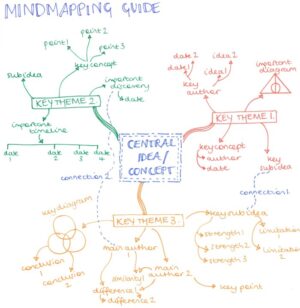 MINDMAPPING GUIDE
point 1
point 2
point 3
key concept
subidea
important
discovery
date
KEY THEME 2
important
timeline
date
date
2
date
3
date
4
date 2
date 1
idea 2
idea 1
key
author
important
diagram
KEY THEME 1
key concept
author
date
key
subidea
CENTRAL
IDEA/
CONCEPT
connection 2
connection 1
KEY THEME 3
key diagram
conclusion
conclusion
2
main
author 1
similarity 1
main
author 2
difference 1
difference 2
key subidea
strength 1
strength 2
strength 3
limitation
limitation
2
key point